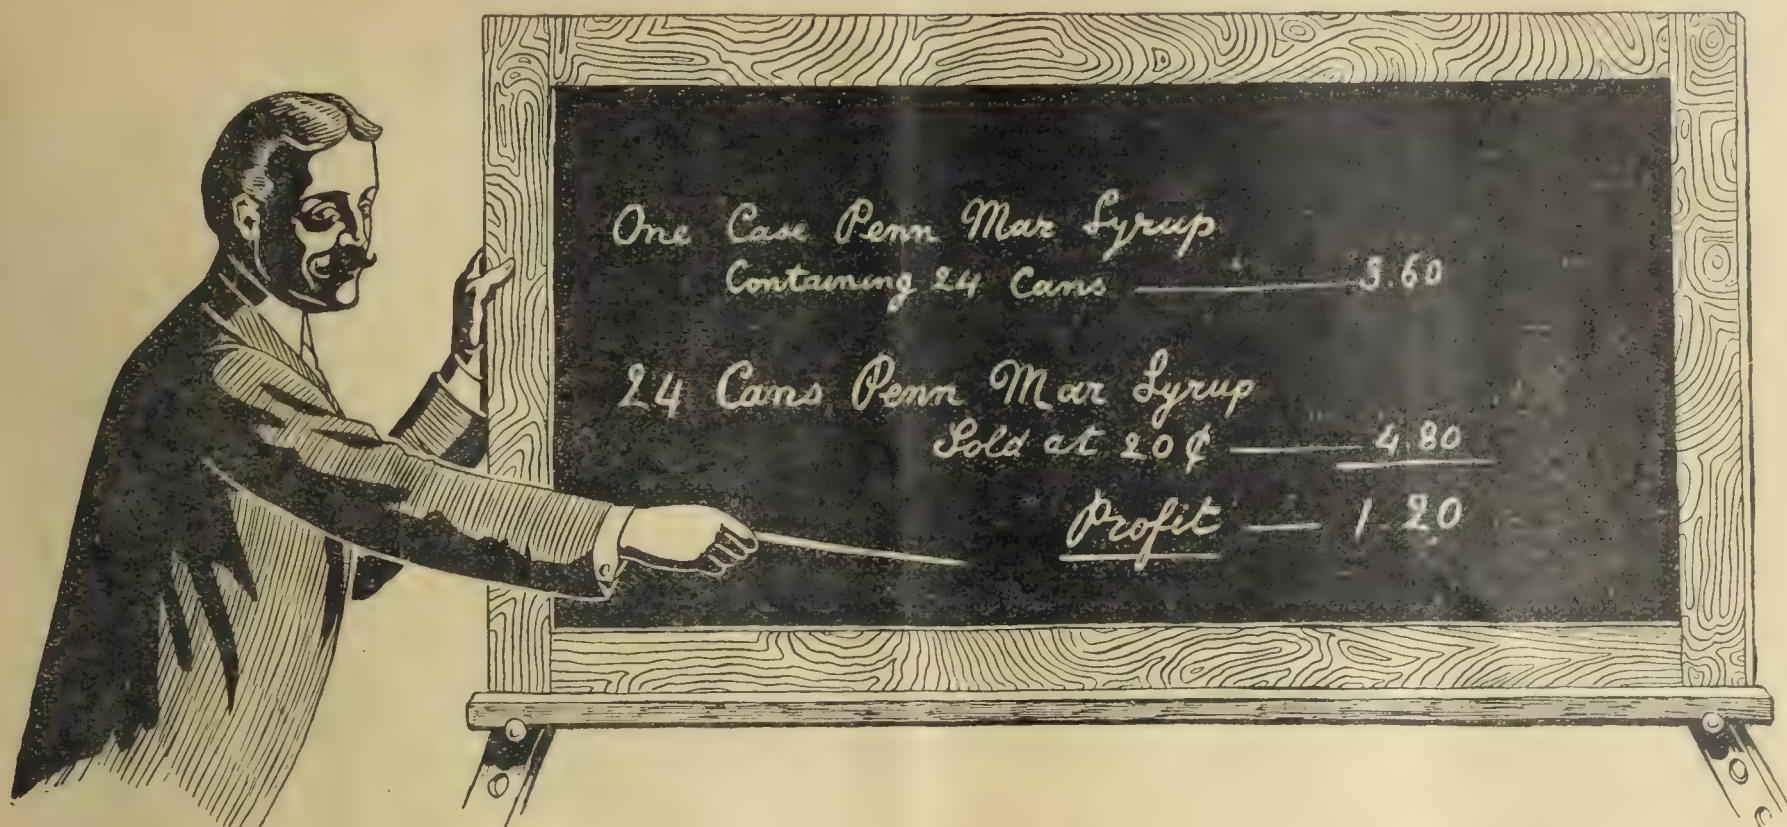 One Case Penn Mar Syrup
Containing 24 Cans — 3.60
24 Cans Penn Mar Syrup
Sold at 20 ¢ — 4.80
Profit — 1 20